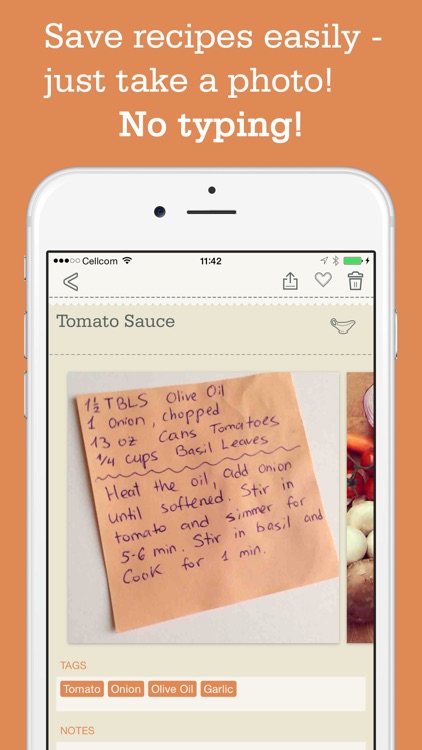 Save recipes easily -
just take a photo!
No typing!
Cellcom 11:42
Tomato Sauce
1½ TBLS Olive Oil
1 Onion, chopped
13 oz Cans Tomatoes
1/4 cups Basil Leaves
Heat the oil, add onion
until softened. Stir in
tomato and simmer for
5-6 min. Stir in basil and
Cook for 1 min.
TAGS
Tomato Onion Olive Oil Garlic
NOTES